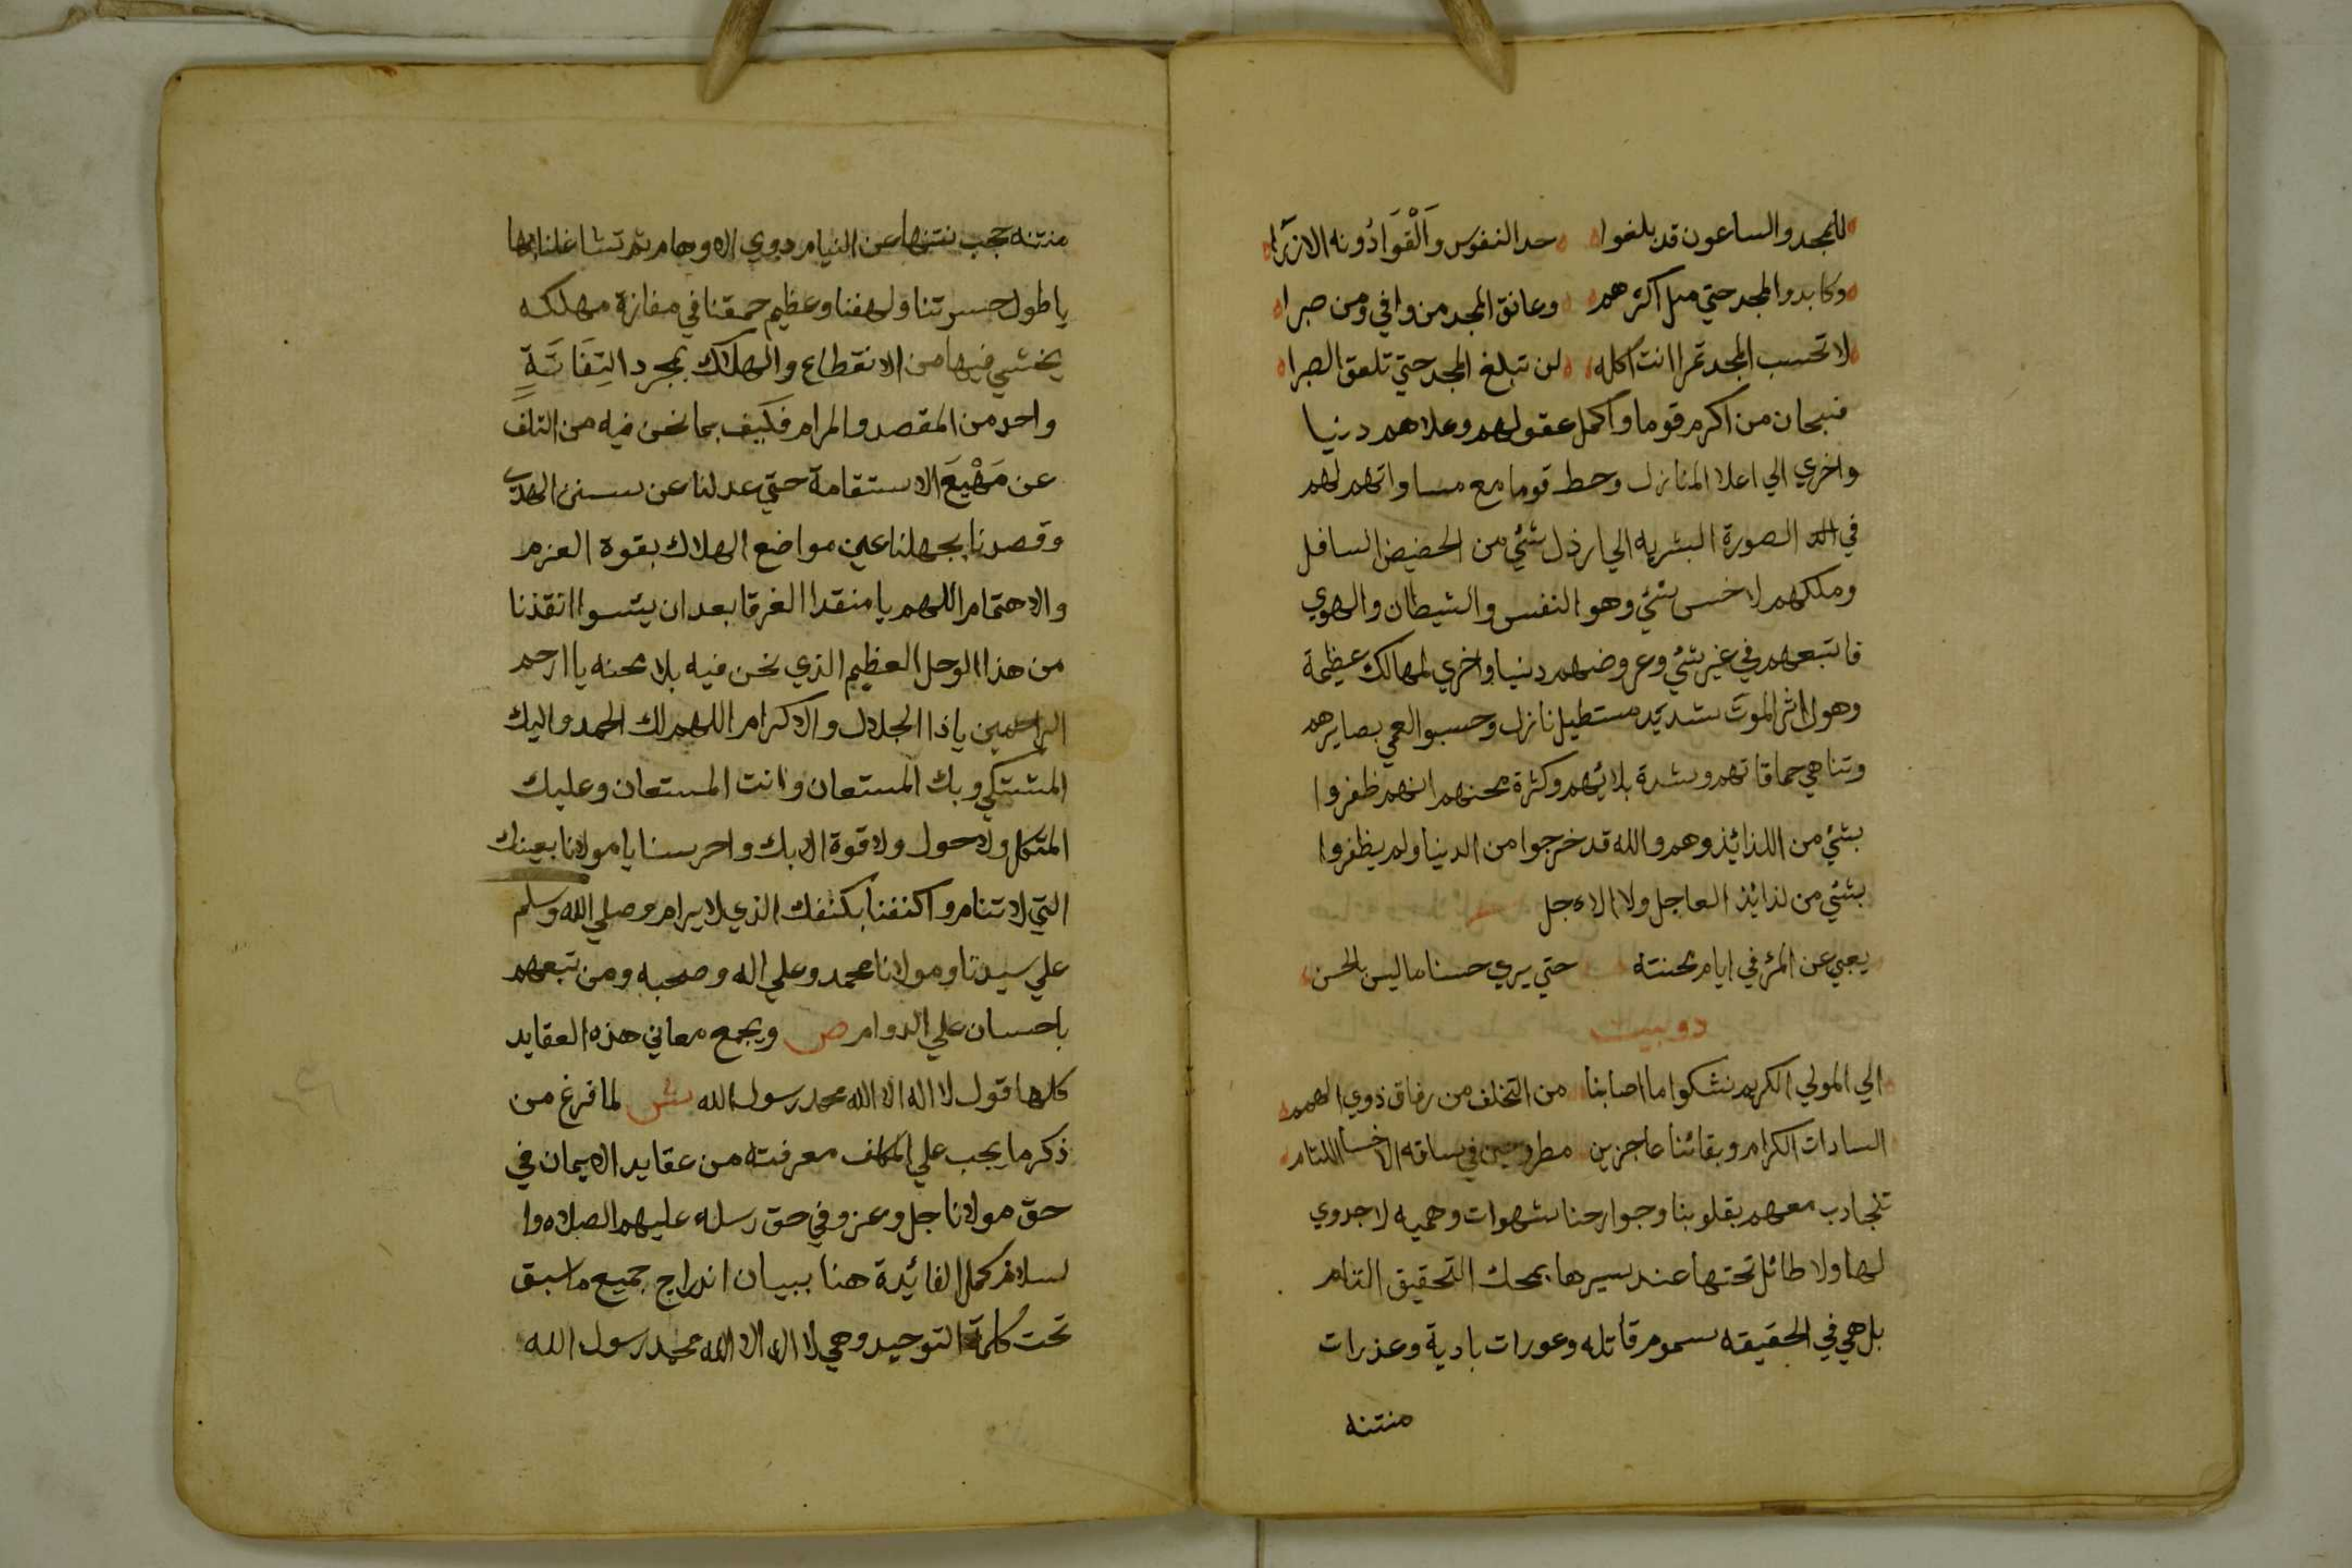 للمجد والساعون قد بلغوا حد النفوس وَاَلْقَوَا دُونه الازرا
وكابدوا المجد حتي مل اكثرهم وعانق المجد من وافي ومن صبرا
لا تحسب المجد تمرا انت اكله لن تبلغ المجد حتي تلعق الصبرا
فسبحان من اكرم قوما واكمل عقولهم وعلاهم دنيا
واخري الي اعلا المنازل وحط قوما مع مساواتهم لهم
في الصورة البشريه الي ارذل شئي من الحضيض السافل
وملكهم لاخس شئي وهو النفس والشيطان والهوي
فاتبعهم في غير شئي وعروضهم دنيا واخري لمهالك عظيمة
وهول اثر الموت شديد مستطيل نازل وحسبوا العمي بصايرهم
وتناهي حماقاتهم وشدة بلائهم وكثرة محنهم انهم ظفروا
بشئي من اللذائذ وهم والله قد خرجوا من الدنيا ولم يظفروا
بشئي من لذائذ العاجل ولا الاءجل
يعمي عن المرء في ايام محنته حتي يري حسنا ما ليس بالحسن
دوبيت
الي المولي الكريم نشكوا ما اصابنا من التخلف من رفاق ذوي الهمم
السادات الكرام وبقائنا عاجزين مطروحين في ساقه الاخسا اللئام
نتجاذب معهم بقلوبنا وجوارحنا شهوات وهميه لا جدوي
لها ولا طائل تحتها عند سيرها بمحك التحقيق التام
بل هي في الحقيقه سموم قاتله وعورات بادية وعذرات
منتنه
منتنه حجب نتنها عن النيام ذوي الاوهام ثم تشاغلنا بها
يا طول حسرتنا ولهفنا وعظيم حمقنا في مفازة مهلكه
يخشي فيها من الانقطاع والهلاك بمجرد التِفَاتَةٍ
واحد من المقصد والمرام فكيف بما نحن فيه من التلف
عن مَهْيَعَ الاستقامة حتي عدلنا عن سنن الهدي
وقصدنا بجهلنا عين مواضع الهلاك بقوة العزم
والاهتمام اللهم يا منقدا الغرقا بعد ان يئسوا انقذنا
من هذا الوحل العظيم الذي نحن فيه بلا محنه يا ارحم
الراحمين يا ذا الجلال والاكرام اللهم لك الحمد واليك
المشتكي وبك المستعان وانت المستعان وعليك
المتكل ولا حول ولا قوة الا بك واحرسنا يا مولانا بعينك
التي لا تنام واكنفنا بكنفك الذي لا يرام وصلي الله وسلم
علي سيدنا ومولانا محمد وعلي اله وصحبه ومن تبعهم
باحسان علي الدوام ص ويجمع معاني هذه العقايد
كلها قول لا اله الا الله محمد رسول الله ش لما فرغ من
ذكر ما يجب علي المكلف معرفته من عقايد الايمان في
حق مولانا جل وعز وفي حق رسله عليهم الصلاه وا
لسلام كمل الفائدة هنا ببيان اندراج جميع ما سبق
تحت كلمة التوحيد وهي لا اله الا الله محمد رسول الله